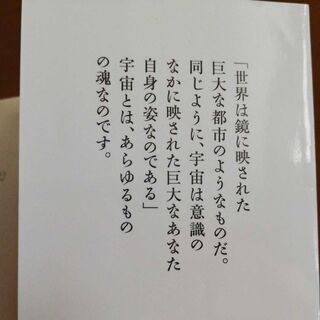 「世界は鏡に映された
巨大な都市のようなものだ。
同じように、宇宙は意識の
なかに映された巨大なあなた
自身の姿なのである」
宇宙とは、あらゆるもの
の魂なのです。